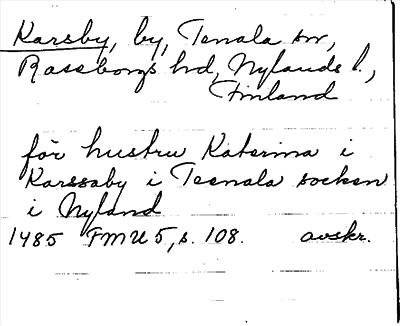 Karsby, by, Tenala sn,
Raseborgs hd, Nylands l.,
Finland
för hustru Katerina i
Karssaby i Teenala socken
i Nyland
1485 FMU 5, s. 108. avskr.